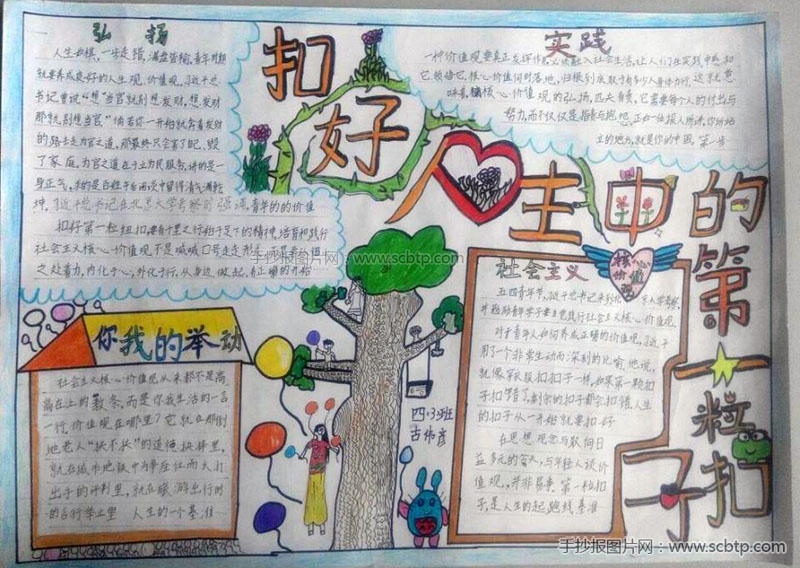 弘扬
人生如棋,一步走错,满盘皆输,青年时期
就要养成良好的人生观、价值观,习近平总
书记曾说“想当官就别想发财,想发财
那就别想当官”倘若你一开始就奔着发财
的路去走为官之道,那最终只会害了自己,毁
了家庭,为官之道在于立为民服务,讲的是一
身正气,
乾坤,习近平总书记在北京大学考察时强调,青年的的价值
扣好第一粒纽扣,要有千里之行始于足下的精神,培育和践行
社会主义核心价值观不是喊喊口号走走形式,而是要
之处着力,内化于心,外化于行,从身边做起,真正
扣好人生中的第一粒扣子
实践
一种价值观要真正发挥作用,必须融入社会生活,让人们在实践中感知
它领悟它,核心价值何时落地,归根到底取于有多少人身体力行,这就意
味着,核心价值观的弘扬,匹夫有责,它需要每个人的付出与
努力,而不仅仅是指责与抱怨,正如一位报人所讲,你所站
立的地方,就是你的中国,第一步
核心
价值
观
社会主义
五四青年节,习近平总书记来到北京大学考察,
并勉励青年学子要自觉践行社会主义核心价值观,
对于青年人如何养成正确的价值观,习近平
用了一个非常生动而深刻的比喻,他说,
就像穿衣服扣扣子一样,如果第一颗扣
子扣错了,剩余的扣子都会扣错,人生
的扣子从一开始就要扣好
在思想观念与歌何日
益多元的当天,与年轻人谈价
值观,并非易事,第一粒扣
子,是人生的起跑线,基准
你我的举动
社会主义核心价值观从来都不是高
高在上的教条,而是你我生活的一言
一行,价值观在哪里?它就在那倒
地老人“扶不扶”的道德抉择里,
就在城市地铁中为争座位而大打
出手的评判里,就在旅游出行时
的言行举止里 人生的一个基准
四·3班
古伟彦
手抄报图片网:www.scbtp.com
手抄报图片网:www.scbtp.com